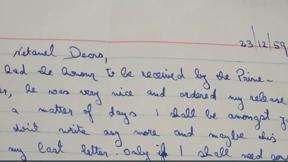 23/12/59
Netanel Dears,
had the honour to be received by the Prime-
he was very nice and ordered my release
a matter of days I shall be amongst
don't write any more and maybe this
my last letter. only if I shall need